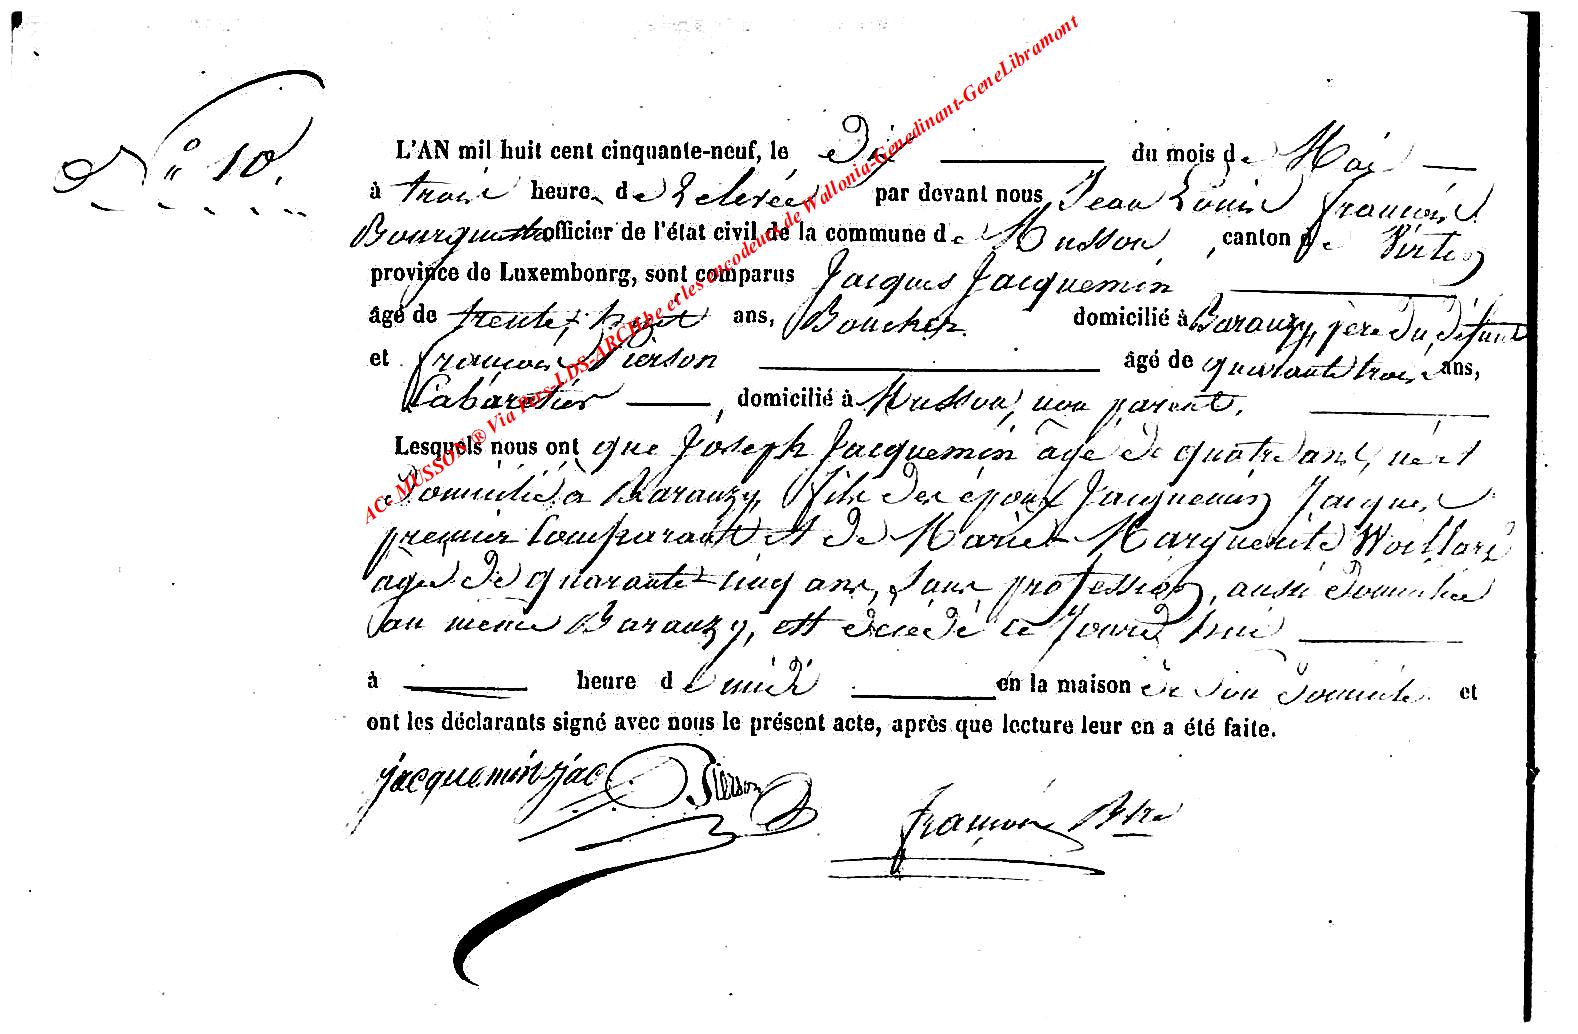 N° 10.
L'AN mil huit cent cinquante-neuf, le dix du mois de Mai
à trois heures de relevée par devant nous Jean Louis François
Bourgmestre officier de l'état civil de la commune de Musson, canton de Virton
province de Luxembonrg, sont comparus Jacques Jacquemin
âgé de trente-huit ans, Boucher domicilié à Baranzy, père du défunt
et François Pierson âgé de quarante trois ans,
Cabaretier, domicilié à Musson, non parent,
Lesquels nous ont que Joseph Jacquemin âgé de quatre ans, né et
domicilié à Baranzy, fils des époux Jacquemin Jacques
premier comparant et de Marie Marguerite
agée de quarante-cinq ans, sans profession, aussi domiciliée
au même Baranzy, est décédé ce jourd'hui
à heure de midi en la maison de son domicile et
ont les déclarants signé avec nous le présent acte, après que lecture leur en a été faite.
jacquemin jac Pierson
François Btre
AC. MUSSON® Via Pers-LDS-ARCH.be et les encodeurs de Wallonia-Genedinant-GeneLibramont